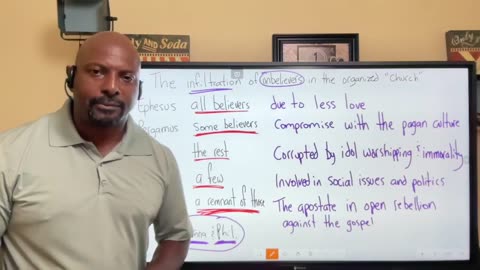 AND Soda
The infiltration of unbelievers in the organized "Church"
Ephesus all believers due to less love
Some believers Compromise with the pagan culture
the rest Corrupted by idol worshipping & immorality
a few Involved in social issues and politics
a remnant of those The apostate in open rebellion
against the gospel
& Phil.